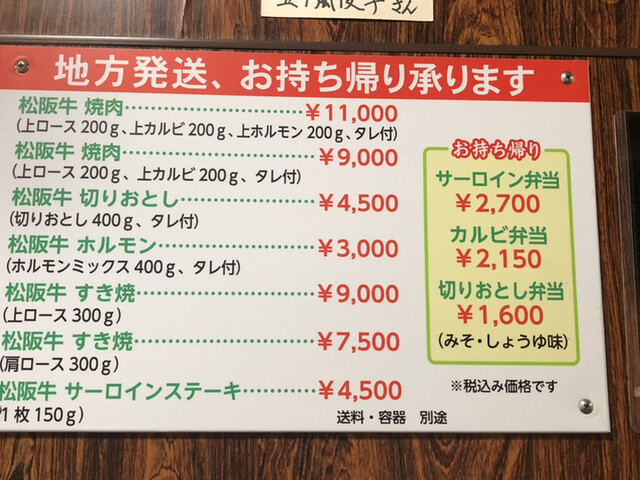 さん
地方発送、お持ち帰り承ります
松阪牛 焼肉…………………¥11,000
(上ロース200g、上カルビ200g、上ホルモン200g、タレ付)
松阪牛 焼肉…………………¥9,000
(上ロース200g、上カルビ200g、タレ付)
松阪牛 切りおとし……………¥4,500
(切りおとし400g、タレ付)
松阪牛 ホルモン………………¥3,000
(ホルモンミックス400g、タレ付)
松阪牛 すき焼…………………¥9,000
(上ロース300g)
松阪牛 すき焼…………………¥7,500
(肩ロース300g)
松阪牛 サーロインステーキ………¥4,500
1枚150g)
送料・容器 別途
お持ち帰り
サーロイン弁当
¥2,700
カルビ弁当
¥2,150
切りおとし弁当
¥1,600
(みそ・しょうゆ味)
※税込み価格です